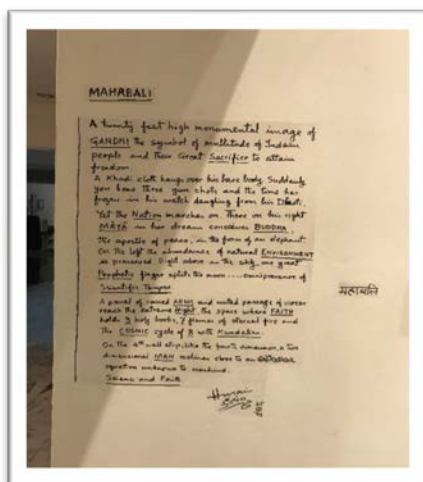 MAHABALI
A twenty feet high monumental image of
GANDHI the symbol of multitude of Indian
people and their Great Sacrifice to attain
freedom
A Khadi cloth hangs over his bare body. Suddenly
you hear three gun shots and the time has
frozen in his watch dangling from his Dhoti.
Yet the Nation marches on. There on his right
MAYA in her dream conceives BUDDHA,
the apostle of peace, in the form of an elephant.
On the left the abundance of natural ENVIRONMENT
is preserved. Right above in the sky, one great
Prophets finger splits the moon .... omnipresence of
Scientific
A panel of raised ARMS and united passage of
reach the extreme right, the space where FAITH
holds 3 holy books, 7 flames of eternal fire and
the COSMIC cycle of 8 with Kundalini.
On the 4th wall strip, like the fourth dimension, a two
dimensional MAN reclines close to an
equation unknown to mankind.
Science and Faith
Husain
महाबलि